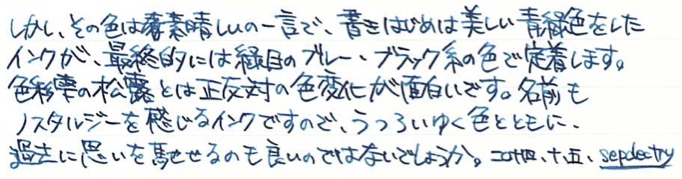 しかし、その色は素晴しいの一言で、書きはじめは美しい青緑色をした
インクが、最終的には緑目のブルー・ブラック系の色で定着します。
色彩雫の松露とは正反対の色変化が面白いです。名前も
ノスタルジーを感じるインクですので、うつろいゆく色とともに、
過去に思いを馳せるのも良いのではないでしょうか。二〇廿四、十、五、sepdectry